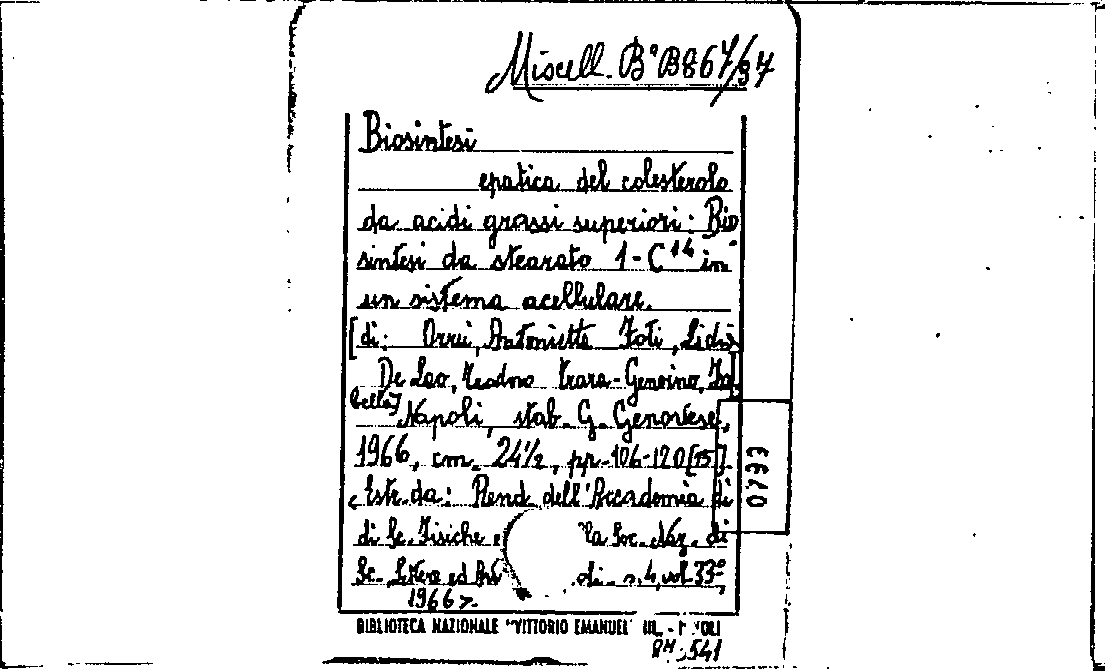 Miscell. B°B867/37
Biosintesi
epatica del colesterolo
da acidi grassi superiori: Bio
sintesi da stearato 1-C14 in
un sistema acellulare.
[di: Orrù, Antonietta Foti, Lidia
De Leo, Teodoro Trara-Genoino, Isa
bella]
Napoli, stab. G. Genovese,
1966, cm. 24½, pp. 106-120 [15].
<Estr. da: Rend dell'Accademia di
di Sc. Fisiche e la Soc. Naz. di
Sc. Lettere ed Arti di s. 4, vol. 33°,
1966>.
0793
BIBLIOTECA NAZIONALE "VITTORIO EMANUELE III" - NAPOLI
541